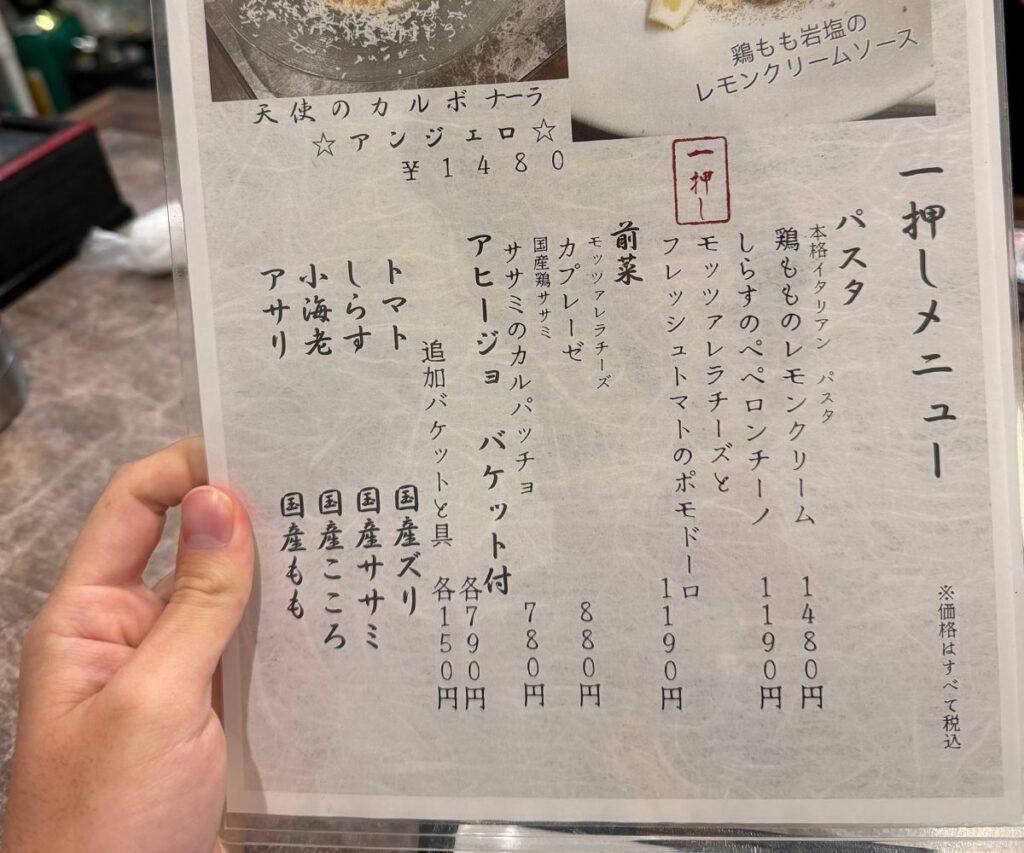 天使のカルボナーラ
☆アンジェロ☆
￥1480
鶏もも岩塩の
レモンクリームソース
一押しメニュー
※価格はすべて税込
パスタ
本格イタリアン パスタ
鶏もものレモンクリーム 1480円
しらすのペペロンチーノ 1190円
モッツァレラチーズと
フレッシュトマトのポモドーロ 1190円
一押し
前菜
モッツァレラチーズ
カプレーゼ 880円
国産鶏ササミ
ササミのカルパッチョ 780円
アヒージョ バケット付 各790円
追加バケットと具 各150円
トマト 国産ズリ
しらす 国産ササミ
小海老 国産こころ
アサリ 国産もも